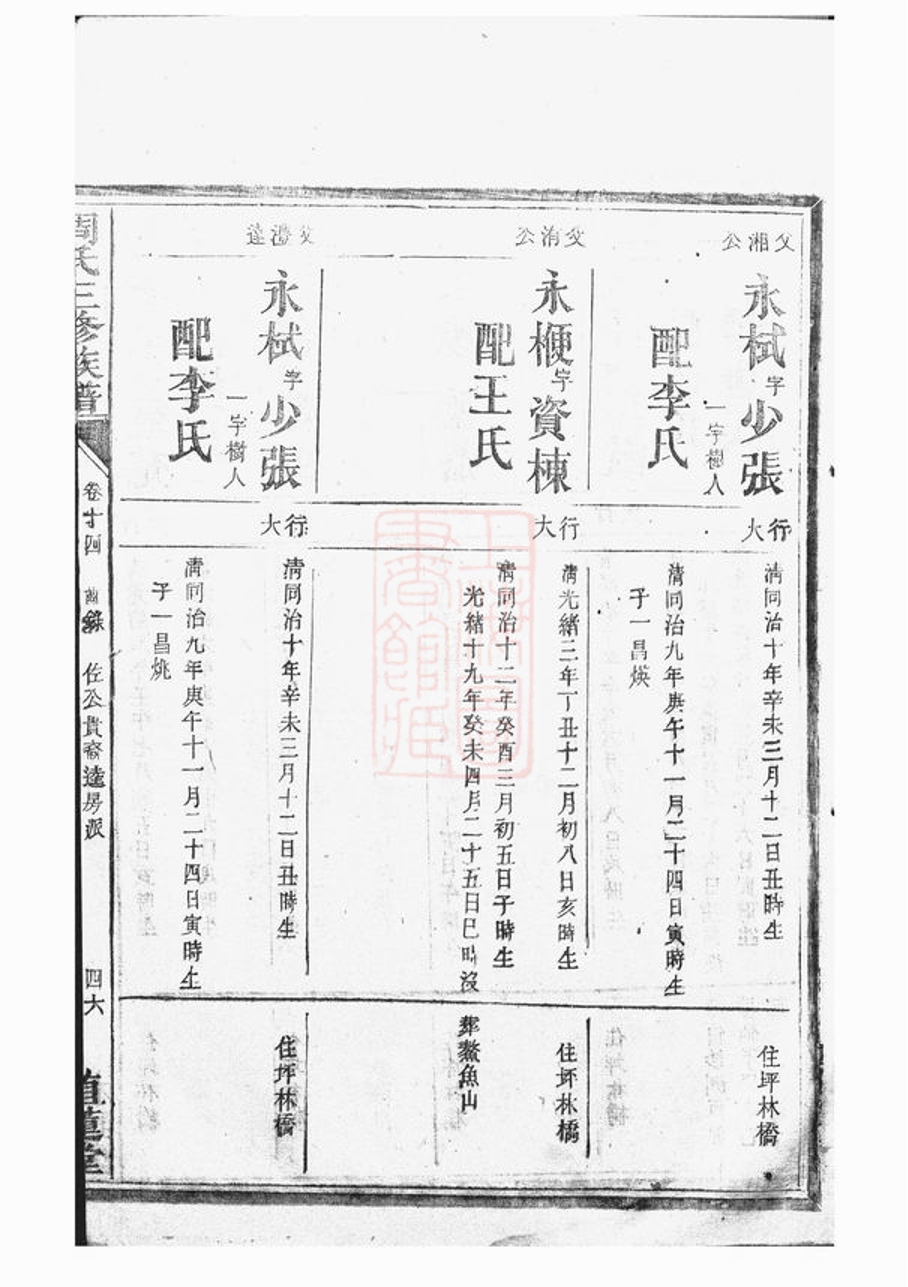 父湘公
永栻字少張
一字樹人
配李氏
行大
清同治十年辛未三月十二日丑時生
清同治九年庚午十一月二十四日寅時生
子一昌煐
住坪林橋
父洧公
永楩字資棟
配王氏
行大
清光緒三年丁丑十二月初八日亥時生
清同治十二年癸酉三月初五日子時生
光緒十九年癸未四月二十五日巳時沒
住坪林橋
葬鰲魚山
父澧逵
永栻字少張
一字樹人
配李氏
行大
清同治十年辛未三月十二日丑時生
清同治九年庚午十一月二十四日寅時生
子一昌烑
住坪林橋
周氏三修族譜
卷十四
齒錄
佐公貴裔達房派
四六
上海圖書館藏